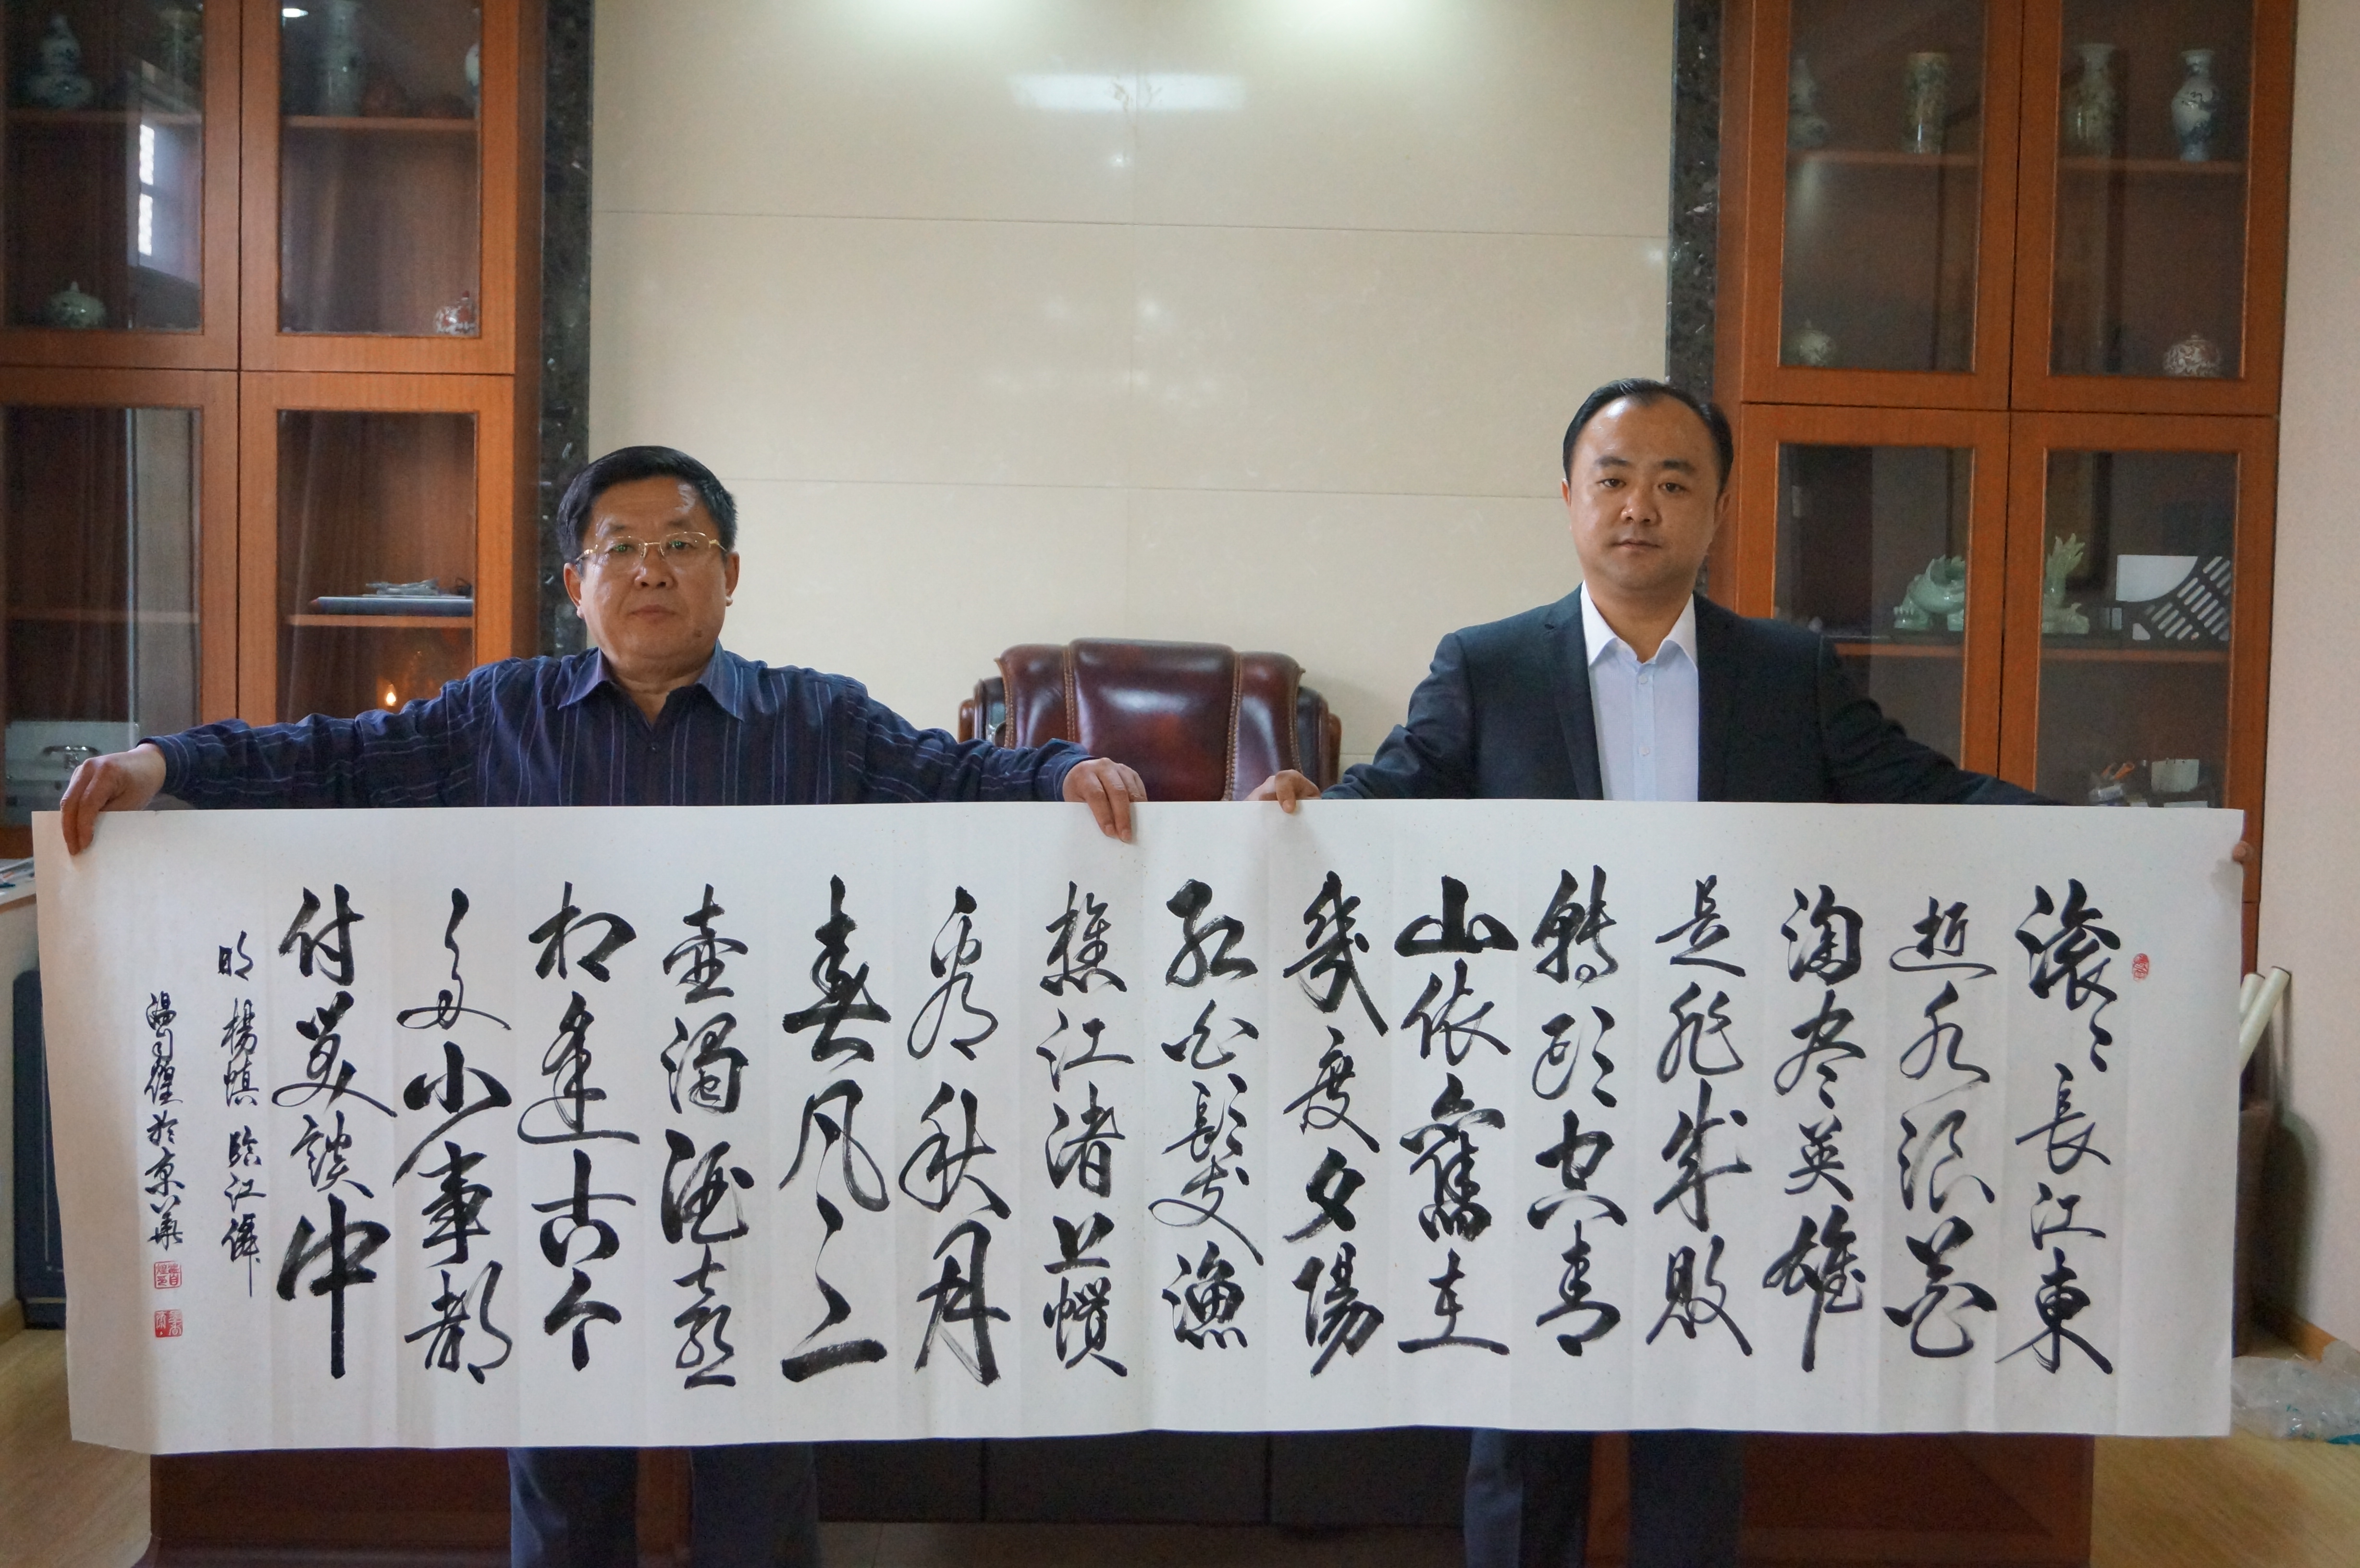 滚〻長江東
逝水浪花
淘尽英雄
是非成敗
轉頭空青
山依舊在
幾度夕陽
紅白髮漁
樵江渚上慣
看秋月
春风一
壺濁酒喜
相逢古今
多少事都
付笑談中
明 楊慎 臨江僊
湯 於京華